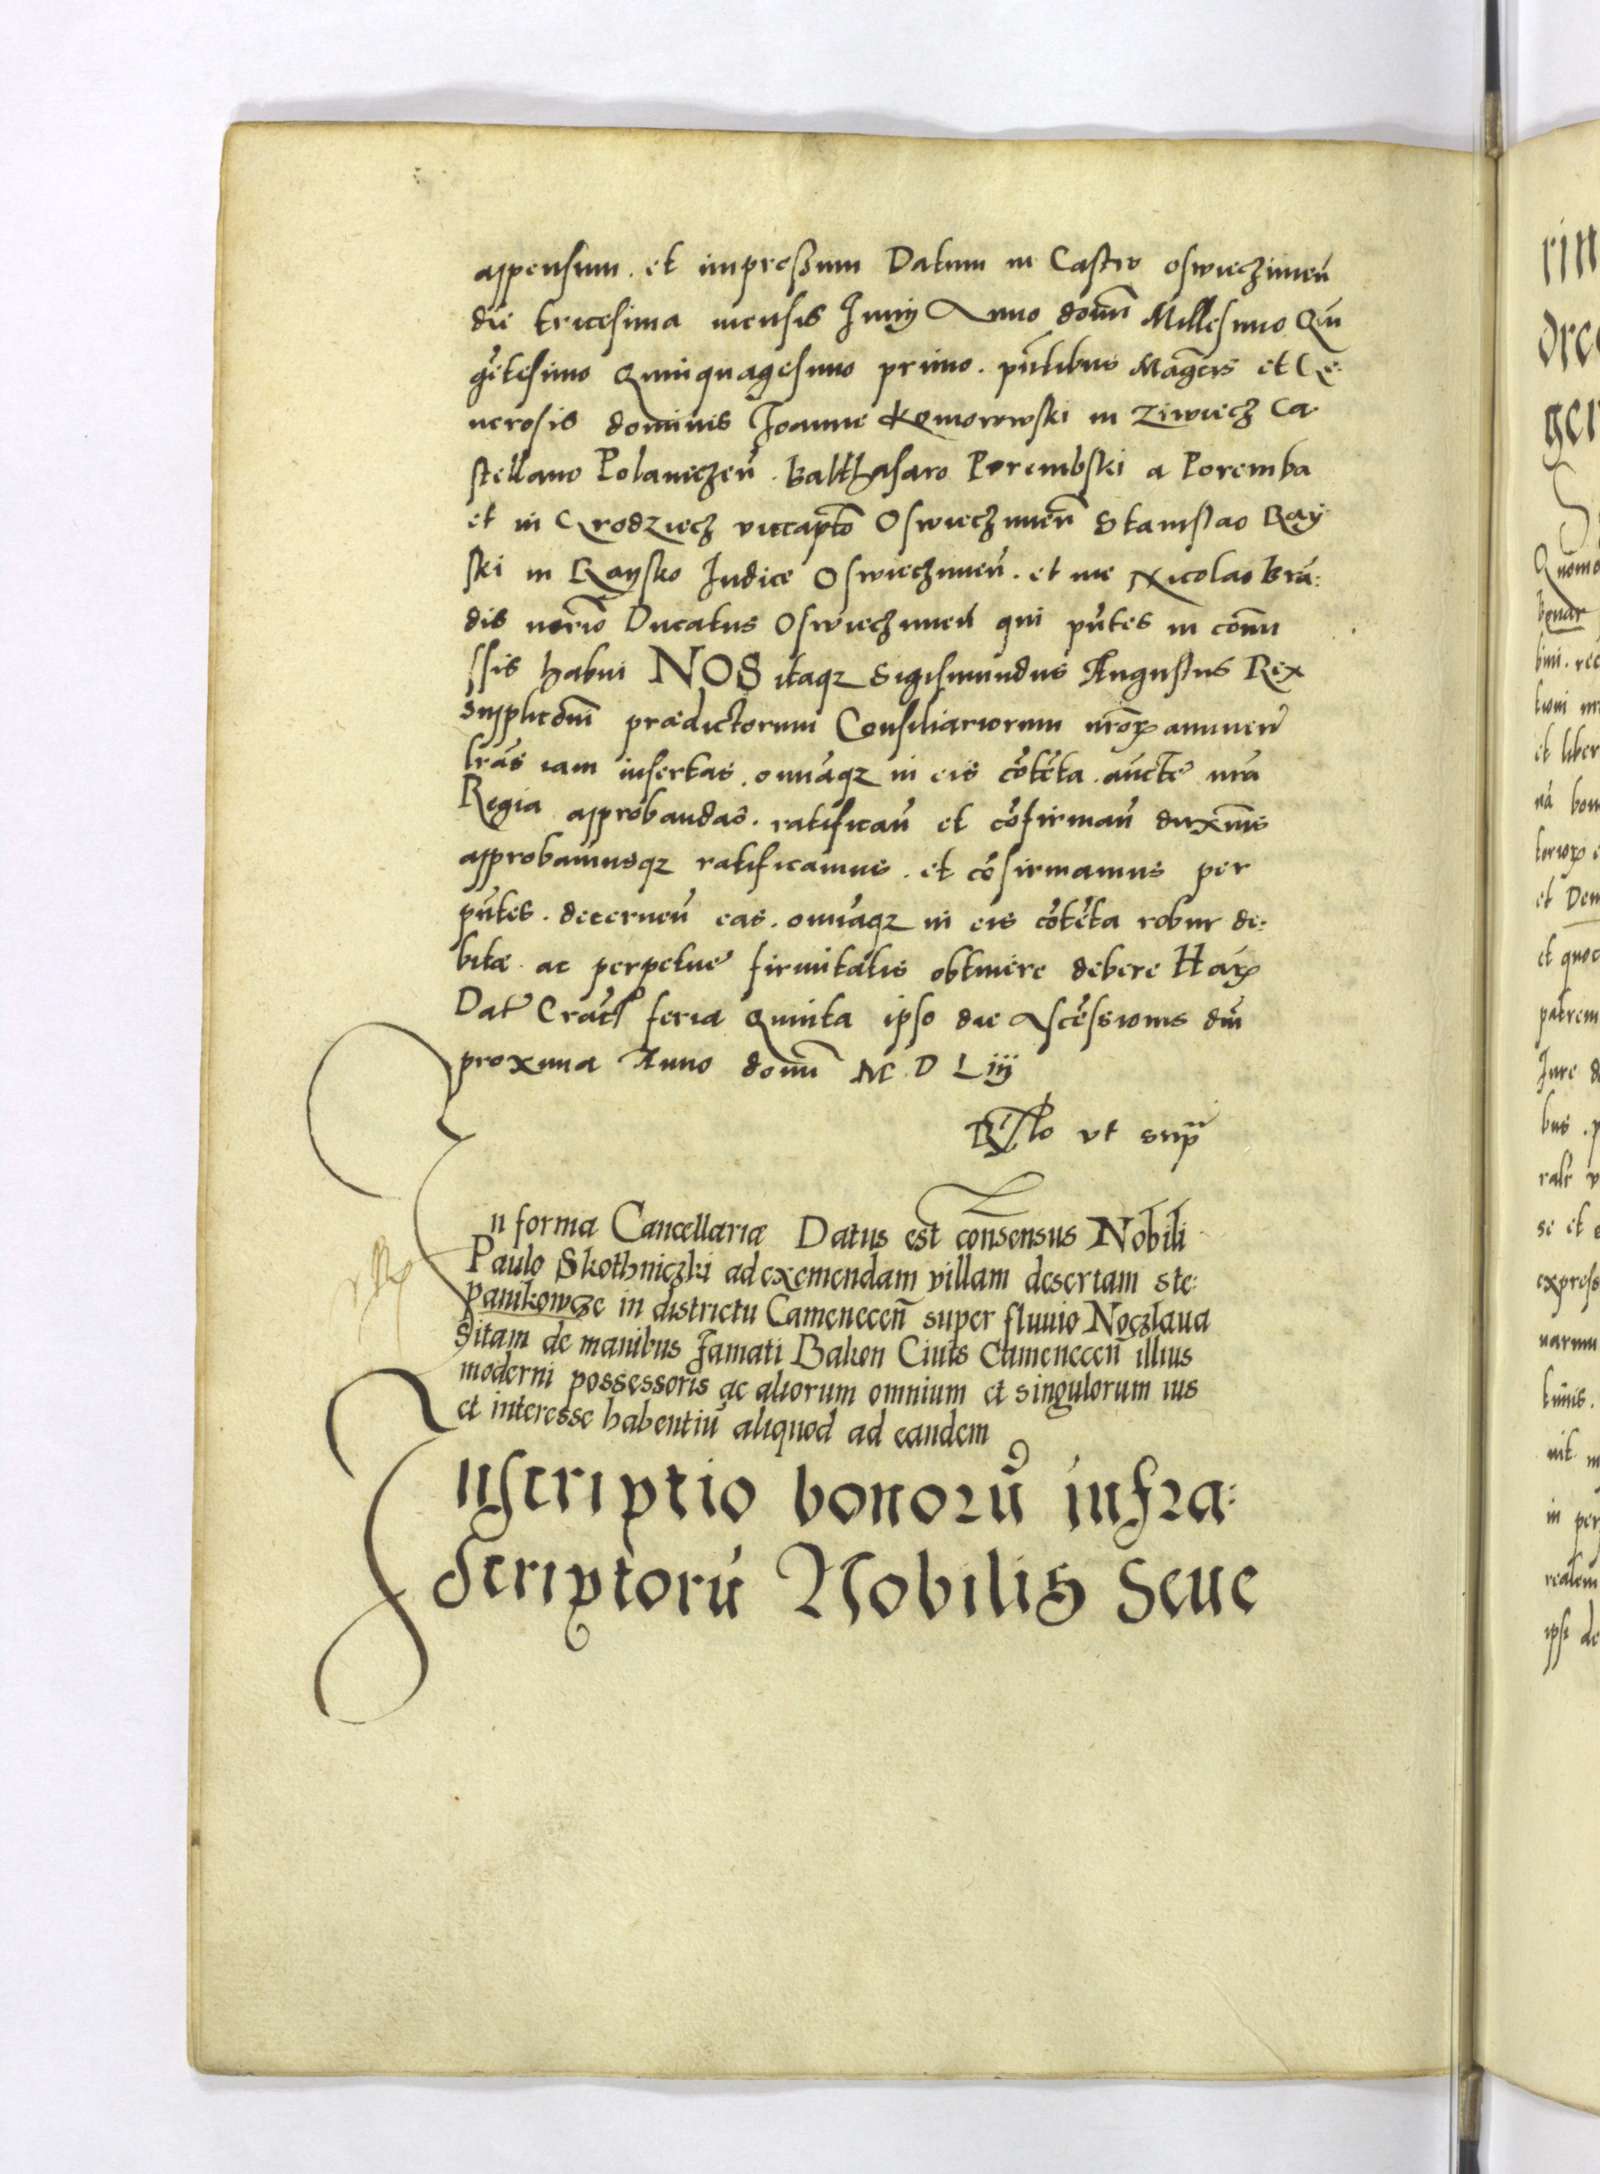 appensum. et impressum Datum in Castro oswieczimen̄
die tricesima mensis Junij Anno domī Millesimo Quī
gētesimo Quinquagesimo primo. pn̄tibus Magcis et Ge:
nerosis dominis Joanne Komorowski in Ziwiecz Ca
stellano Polanieczen̄. Balthasaro Porembski a Poremba
et in Grodziecz vicecaptō Oswieczimen̄ Stanislao Ray
ski in Raysko Judice Oswieczimen̄. et me Nicolao Brā:
dis notrio Ducatus Oswieczimen̄ qui pn̄tes in commi
ssis habui NOS itaqz Sigismundus Augustus Rex
supplicōni prædictorum Consiliariorum nrōrꝝ annuen̄
lrās iam insertas. omniaqz in eis cōtēta. aucte nrā
Regia approbandas. ratifican̄ et cōfirman̄ duximus
approbamusqz ratificamus. et cōfirmamus per
pn̄tes. decernen̄ eas. omniaqz in eis cōtēta robur de:
bitæ ac perpetuæ firmitatis obtinere debere Harꝝ
Dat Crac feria Quinta ipso die Ascēsionis dn̄i
proxima Anno domī M D Liij
Rlo vt supᵃ
In forma Cancellariæ Datus est consensus Nobili
Paulo Skothniczki ad exemendam villam desertam ste:
panikowcze in districtu Camenecen̄ super fluuio Noczlaua
sitam de manibus famati Bakon Ciuis Camenecen̄ illius
moderni possessoris ac aliorum omnium et singulorum ius
et interesse habentiū aliquod ad eandem
Inscriptio bonorū infra:
scriptorū Nobilis Seue